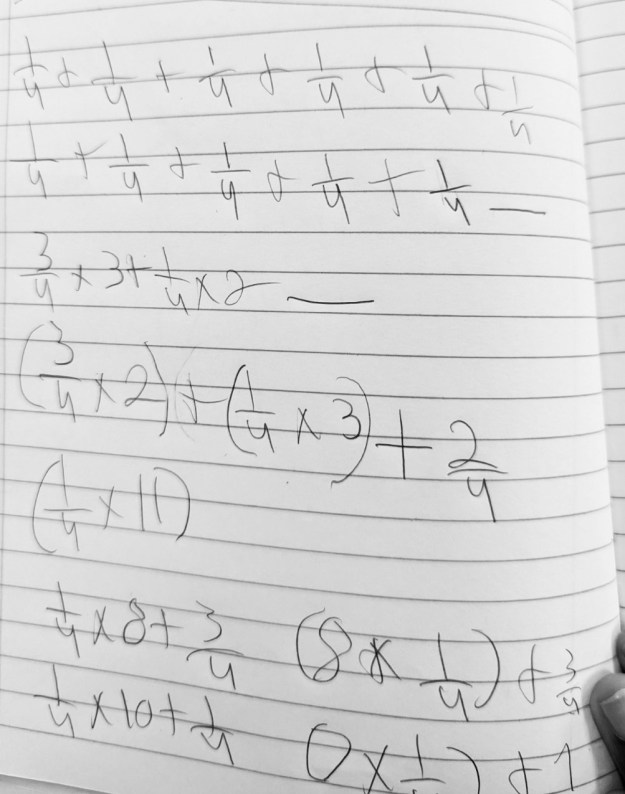 1/4 + 1/4 + 1/4 + 1/4 + 1/4 + 1/4
1/4 + 1/4 + 1/4 + 1/4 + 1/4 —
3/4 × 3 + 1/4 × 2 —
(3/4 × 2) + (1/4 × 3) + 2/4
(1/4 × 11)
1/4 × 8 + 3/4 (8 × 1/4) + 3/4
1/4 × 10 + 1/4